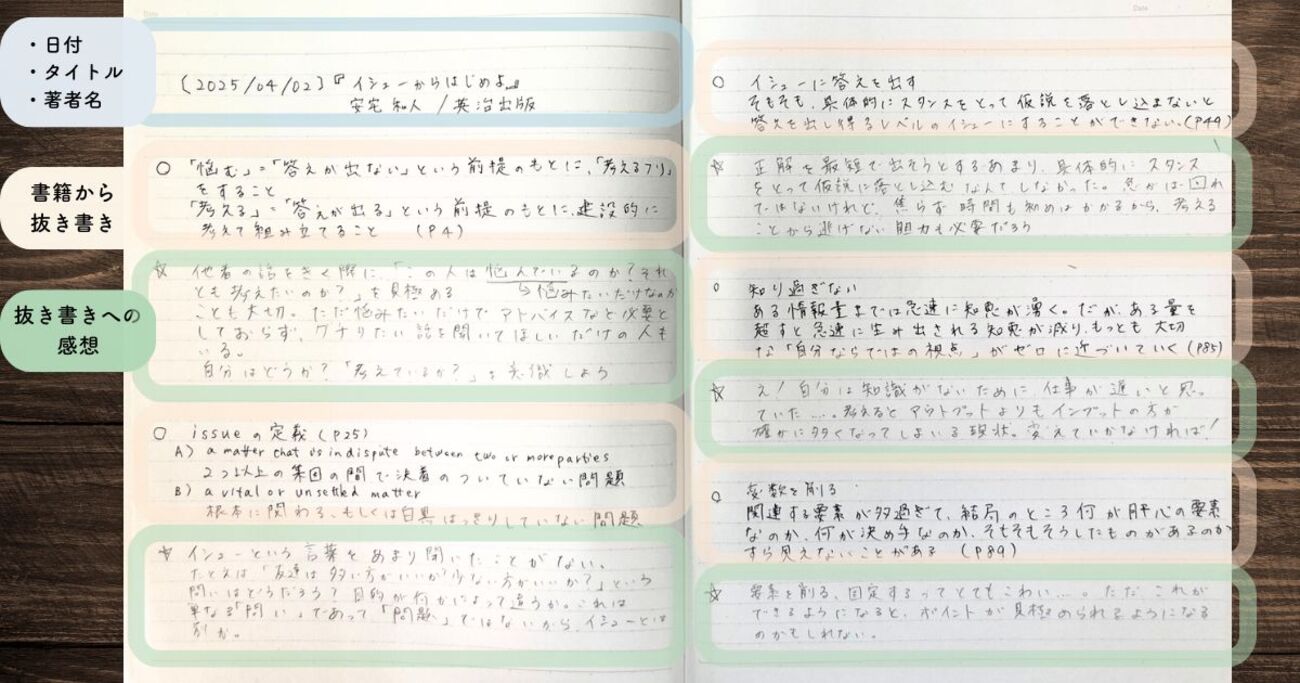 ・日付
・タイトル
・著者名
書籍から
抜き書き
抜き書きへの
感想
[2025/04/02]『イシューからはじめよ』
安宅和人 / 英治出版
○ 「悩む」=「答えが出ない」という前提のもとに、「考えるフリ」
をすること
「考える」=「答えが出る」という前提のもとに、建設的に
考えて組み立てること (P4)
☆ 他者の話をきく際に、「この人は悩んでいるのか?それ
とも考えたいのか?」を見極める
↳悩みたいだけなのか
ことも大切。ただ悩みたいだけでアドバイスなど必要と
しておらず、グチりたい話を聞いてほしいだけの人も
いる。
自分はどうか?「考えているか?」を意識しよう
○ issueの定義 (P25)
A) a matter that is in dispute between two or more parties
2つ以上の集団の間で決着のついていない問題
B) a vital or unsettled matter
根本に関わる、もしくは白黒はっきりしていない問題
☆ イシューという言葉をあまり聞いたことがない。
たとえば「友達は多い方がいいか少ない方がいいか?」という
問いはどうだろう?目的が何かによって違うか。これは
単なる「問い」であって「問題」ではないから、イシューとは
別か。
Date
○ イシューに答えを出す
そもそも、具体的にスタンスをとって仮説を落とし込まないと
答えを出し得るレベルのイシューにすることができない。(P49)
☆ 正解を最短で出そうとするあまり、具体的にスタンス
をとって仮説に落とし込むなんてしなかった。急がば回れ
ではないけれど、焦らず時間も初めはかかるから、考える
ことから逃げない胆力も必要だろう
○ 知り過ぎない
ある情報量までは急速に知恵が湧く。だが、ある量を
超すと急速に生み出される知恵が減り、もっとも大切
な「自分ならではの視点」がゼロに近づいていく (P85)
☆ え!自分は知識がないために、仕事が遅いと思っ
ていた…。考えるとアウトプットよりもインプットの方が
確かに多くなってしまいる現状。変えていかなければ!
○ 変数を削る
関連する要素が多過ぎて、結局のところ何が肝心の要素
なのか、何が決め手なのか、そもそもそうしたものがあるのか
すら見えないことがある (P89)
☆ 要素を削る、固定するってとてもこわい…。ただ、これが
できるようになると、ポイントが見極められるようになる
のかもしれない。